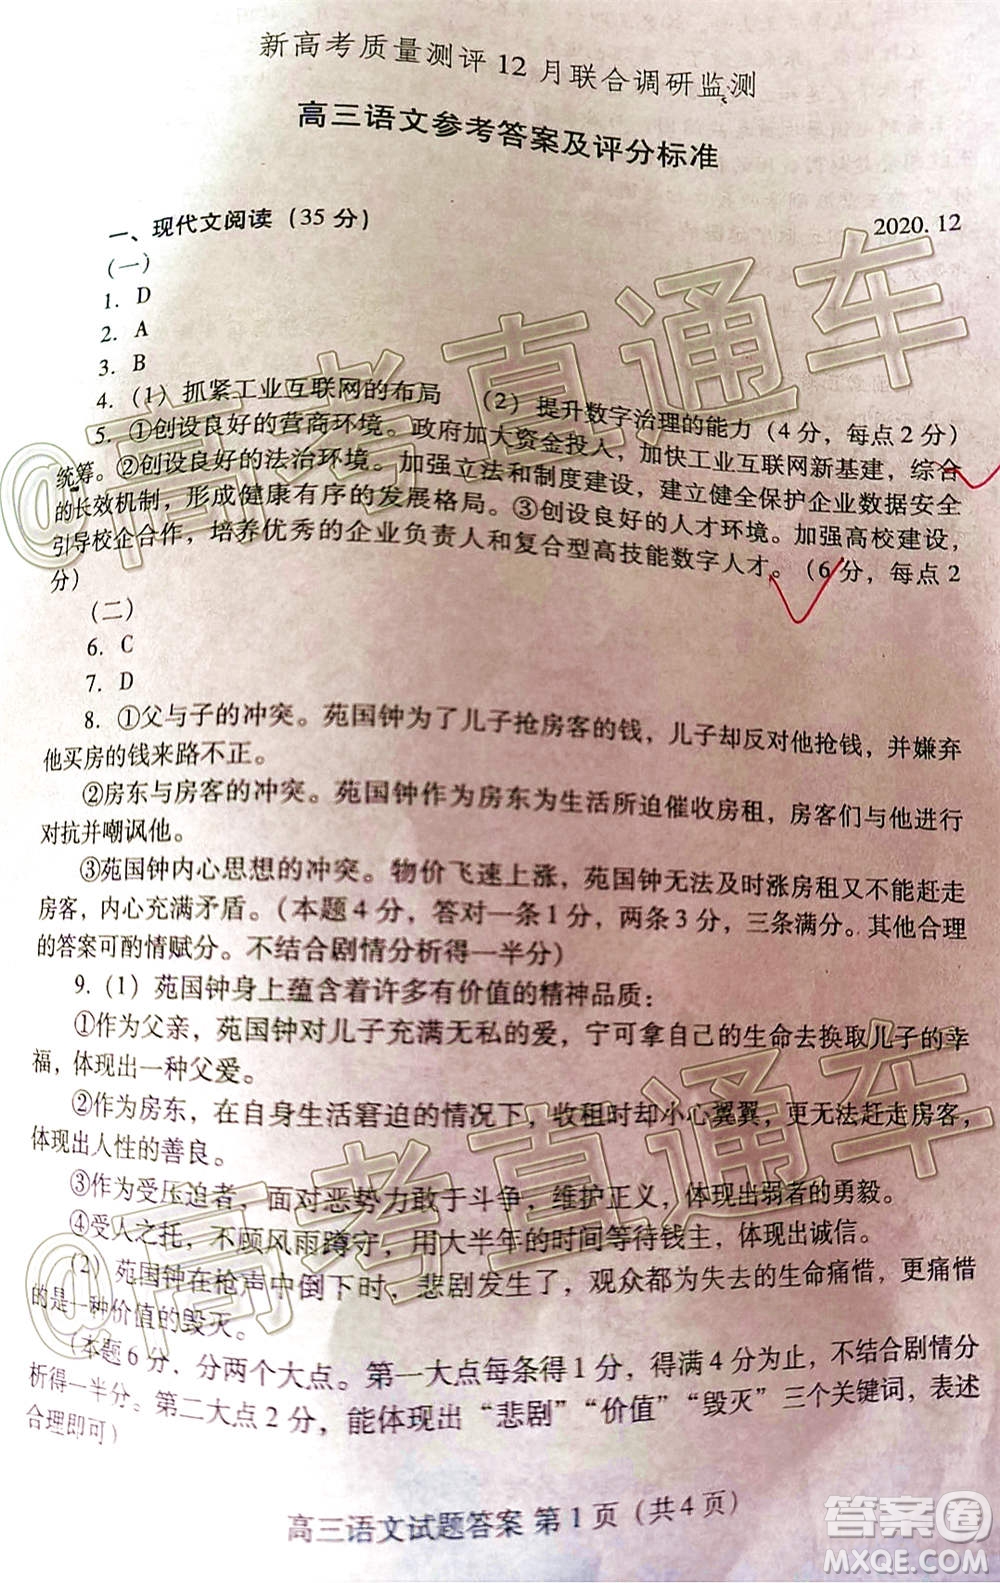 新高考质量测评12月联合调研监测
高三语文参考答案及评分标准
2020.12
一、现代文阅读（35分）
（一）
1. D
2. A
3. B
4.（1）抓紧工业互联网的布局 （2）提升数字治理的能力（4分，每点2分）
5. ①创设良好的营商环境。政府加大资金投入，加快工业互联网新基建，综合
统筹。②创设良好的法治环境。加强立法和制度建设，建立健全保护企业数据安全
的长效机制，形成健康有序的发展格局。③创设良好的人才环境。加强高校建设，
引导校企合作，培养优秀的企业负责人和复合型高技能数字人才。（6分，每点2
分）
（二）
6. C
7. D
8. ①父与子的冲突。苑国钟为了儿子抢房客的钱，儿子却反对他抢钱，并嫌弃
他买房的钱来路不正。
②房东与房客的冲突。苑国钟作为房东为生活所迫催收房租，房客们与他进行
对抗并嘲讽他。
③苑国钟内心思想的冲突。物价飞速上涨，苑国钟无法及时涨房租又不能赶走
房客，内心充满矛盾。（本题4分，答对一条1分，两条3分，三条满分。其他合理
的答案可酌情赋分。不结合剧情分析得一半分）
9.（1）苑国钟身上蕴含着许多有价值的精神品质：
①作为父亲，苑国钟对儿子充满无私的爱，宁可拿自己的生命去换取儿子的幸
福，体现出一种父爱。
②作为房东，在自身生活窘迫的情况下，收租时却小心翼翼，更无法赶走房客，
体现出人性的善良。
③作为受压迫者，面对恶势力敢于斗争，维护正义，体现出弱者的勇毅。
④受人之托，不顾风雨蹲守，用大半年的时间等待钱主，体现出诚信。
（2）苑国钟在枪声中倒下时，悲剧诞生，观众都为失去的生命痛惜，更痛惜
的是一种价值的毁灭。
（本题6分．分两个大点。第一大点每条得1分，得满4分为止，不结合剧情分
析得一半分。第二大点2分，能体现出“悲剧”“价值”“毁灭”三个关键词，表述
合理即可）
高三语文试题答案 第1页（共4页）
@高考直通车
@高考直通车
答案圈
MXQE.COM